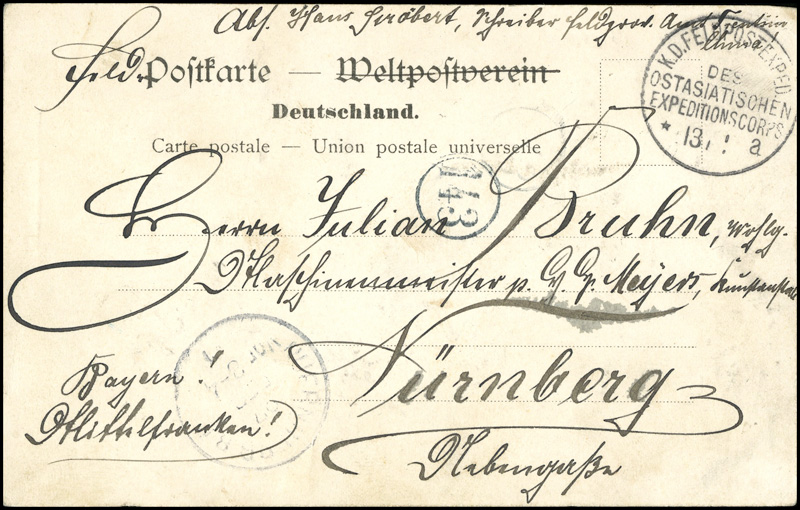 Abs. Hans Schröbert, Schreiber Feldprov. Amt Tientsin
China
Feld-Postkarte — Weltpostverein
Deutschland.
Carte postale — Union postale universelle
K.D. FELDPOSTEXPED.
DES
OSTASIATISCHEN
EXPEDITIONSCORPS
* 13/ a
143
Herrn Julian Bruhn, Wohlg.
Maschinenmeister p. G. G. Meyers, Kunstanstalt
Nürnberg
Bayern!
Mittelfranken!
Nebengaße